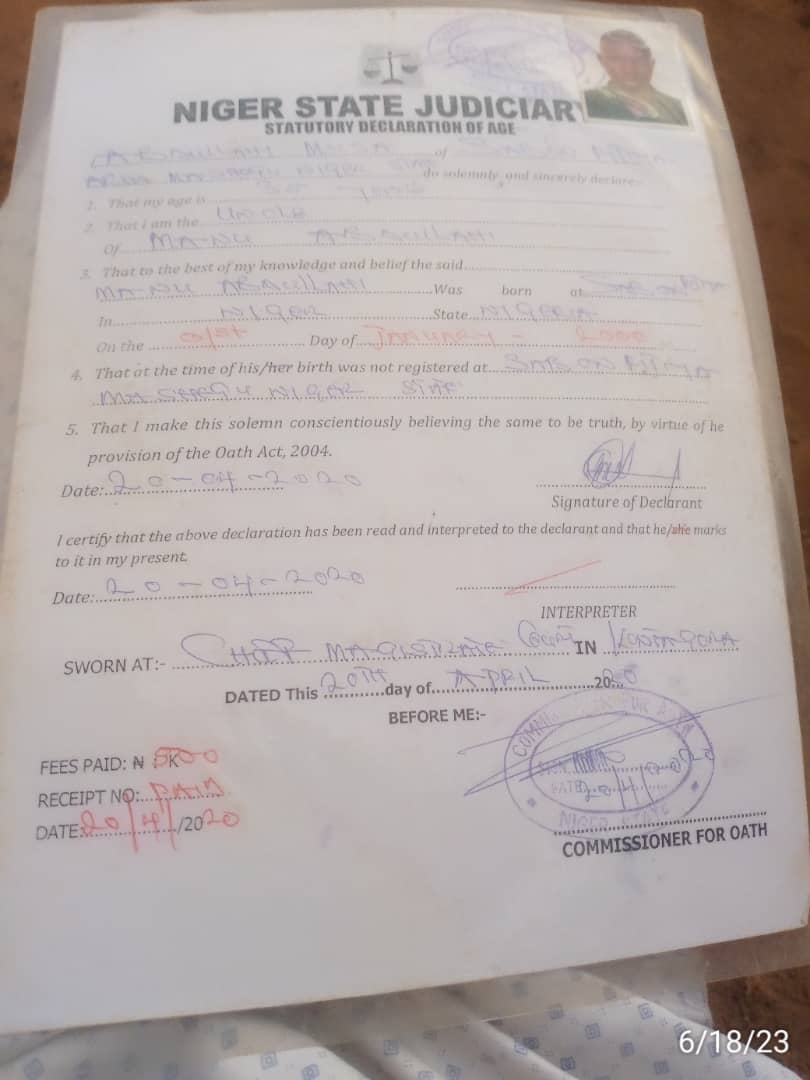 NIGER STATE JUDICIARY
STATUTORY DECLARATION OF AGE
ABDULLAHI MUSA of SABON RIJIYA
NIGER STATE do solemnly and sincerely declare:-
1. That my age is 35 years
2. That I am the UNCLE
Of MANU ABDULLAHI
3. That to the best of my knowledge and belief the said
MANU ABDULLAHI Was born at
In NIGER State NIGERIA
On the 01st Day of JANUARY - 2000
4. That at the time of his/her birth was not registered at
NIGER STATE
5. That I make this solemn conscientiously believing the same to be truth, by virtue of he
provision of the Oath Act, 2004.
Date: 20-04-2020
Signature of Declarant
I certify that the above declaration has been read and interpreted to the declarant and that he/she marks
to it in my present.
Date: 20-04-2020
INTERPRETER
SWORN AT:- CHIEF MAGISTRATE COURT IN KONTAGORA
DATED This 20TH day of APRIL 2020
BEFORE ME:-
FEES PAID: ₦ 500 : K
RECEIPT NO: PAID
DATE: 20/4/2020
NIGER STATE
COMMISSIONER FOR OATH
6/18/23